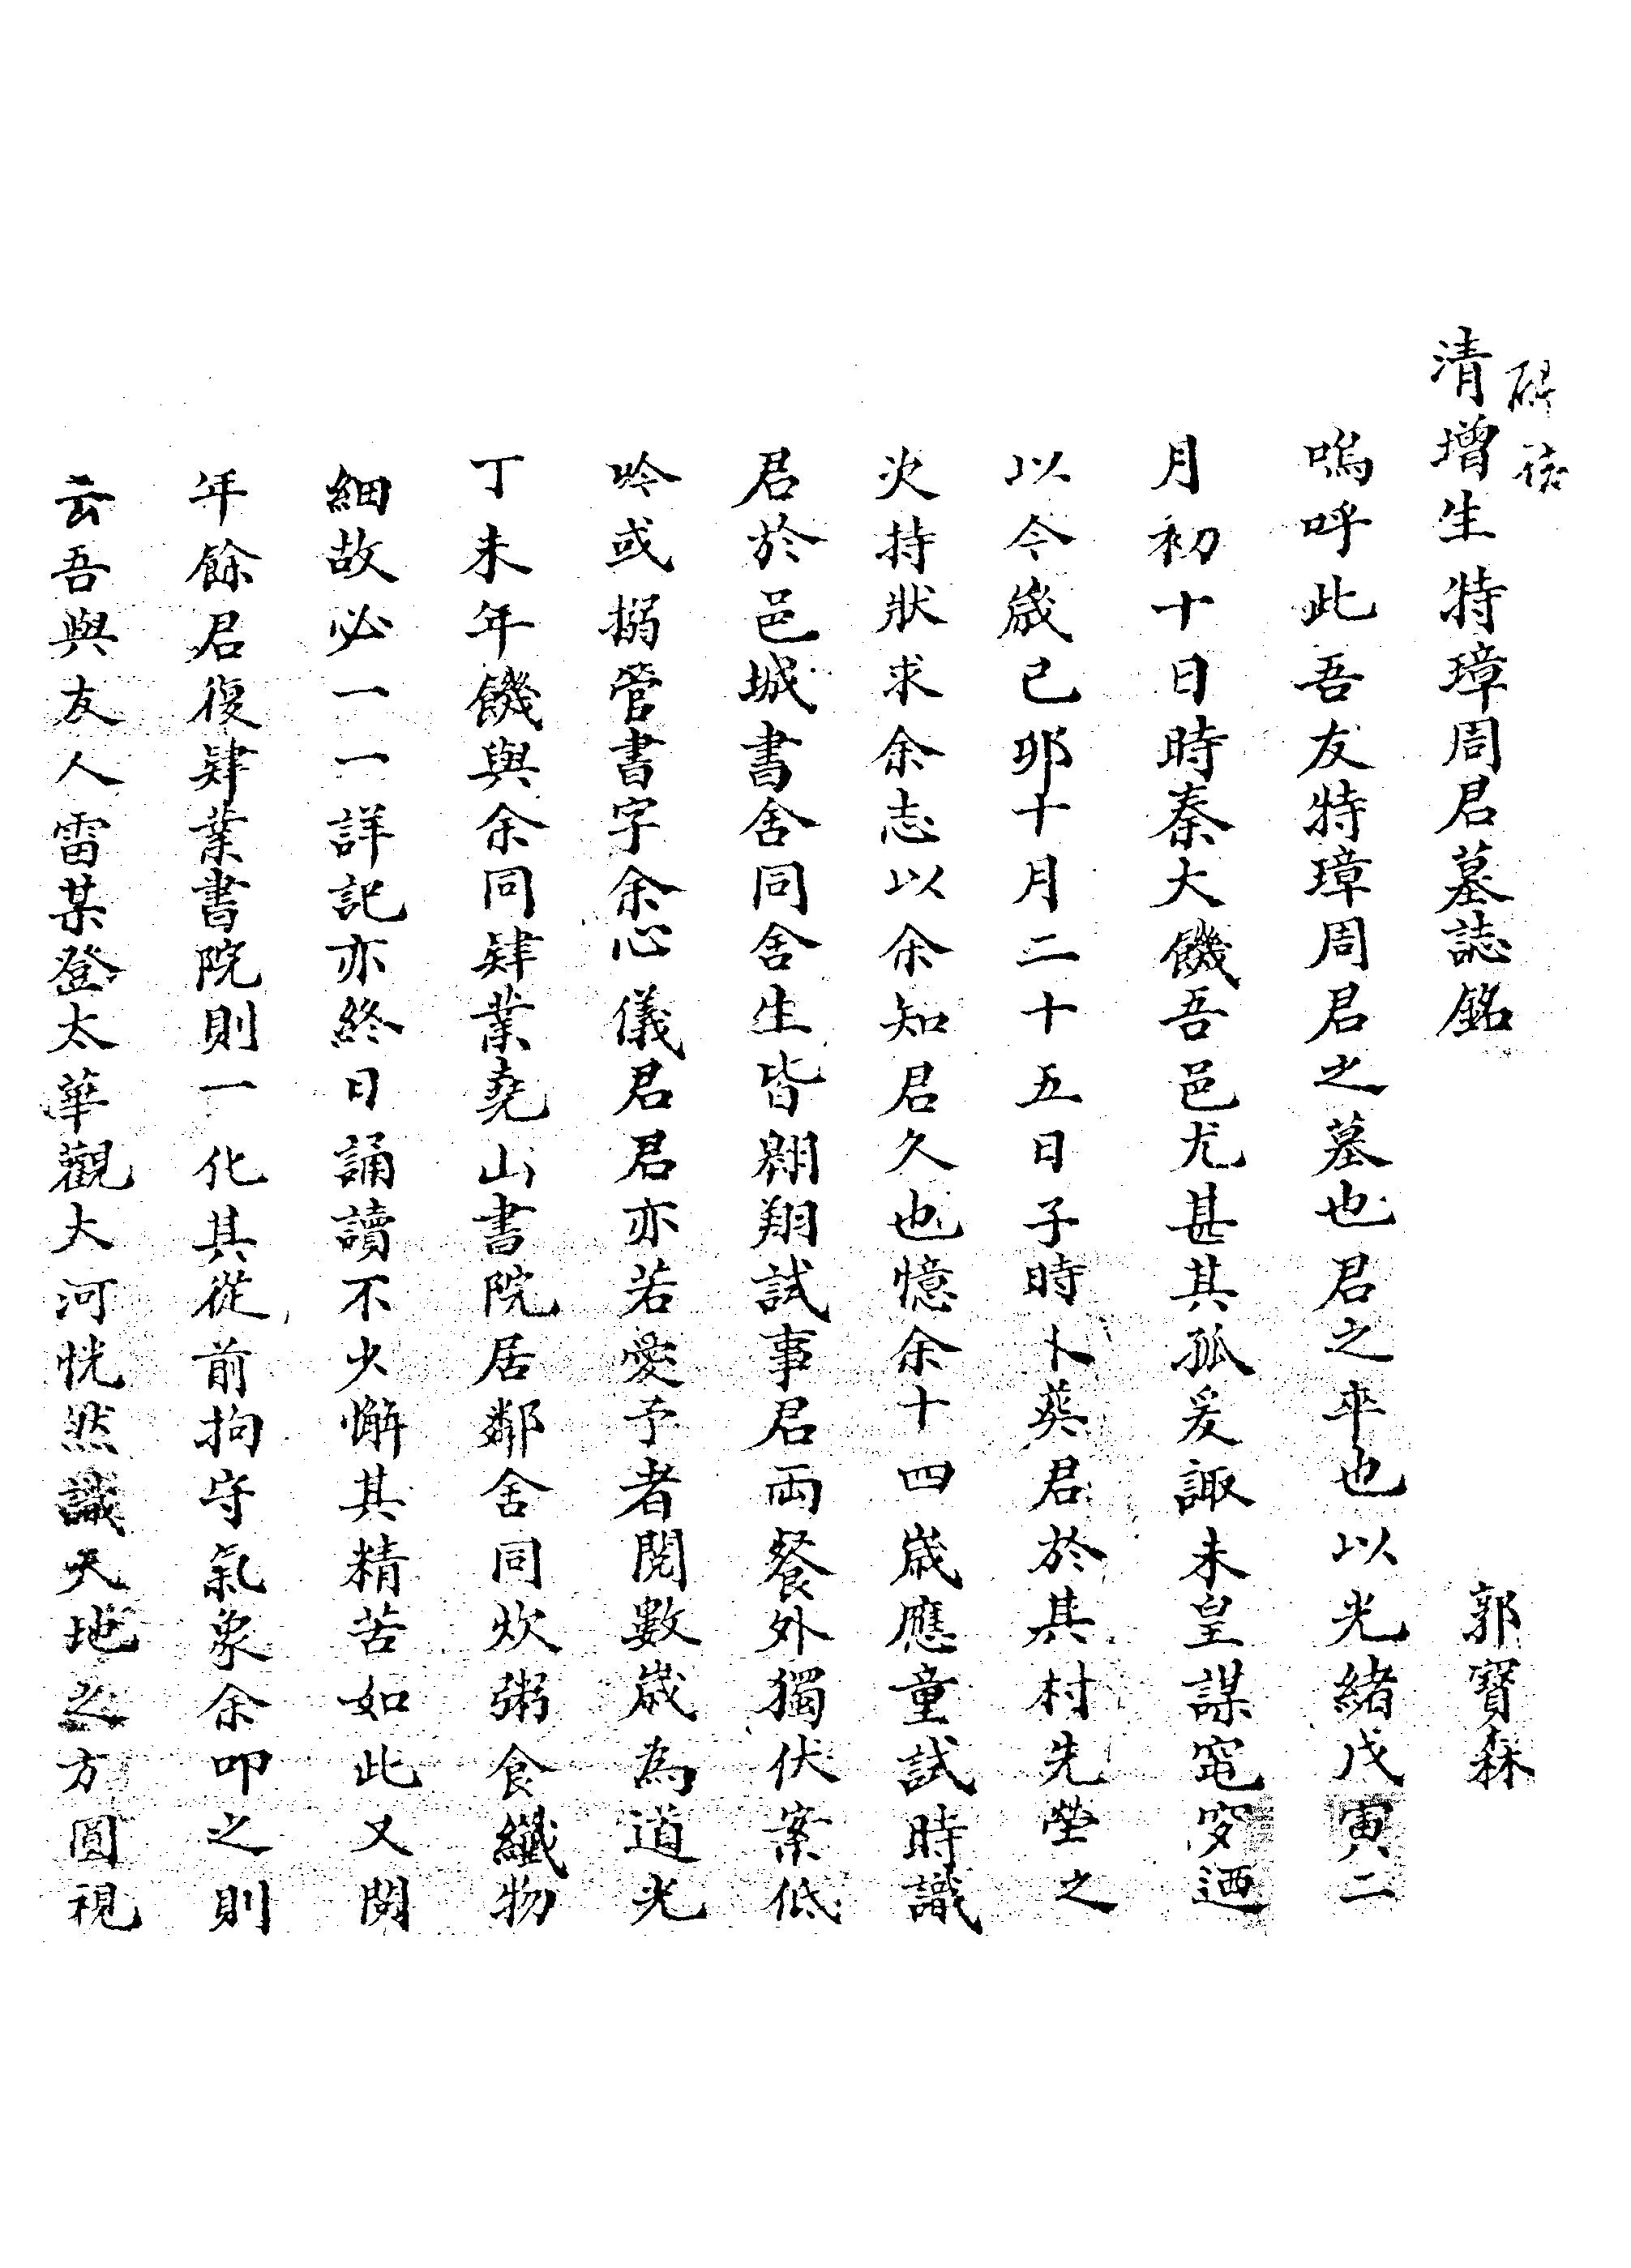 碑誌
清增生特璋周君墓誌銘 郭寶森
嗚呼此吾友特璋周君之墓也君之卒也以光緒戊寅二
月初十日時秦大饑吾邑尤甚其孤爰諏未皇謀窀穸迺
以今歲己卯十月二十五日子時卜葬君於其村先塋之
次持狀求余志以余知君久也憶余十四歲應童試時識
君於邑城書舍同舍生皆翱翔試事君兩餐外獨伏案低
吟或搦管書字余心儀君君亦若愛予者閱數歲為道光
丁未年饑與余同肄業堯山書院居鄰舍同炊粥食纖物
細故必一一詳記亦終日誦讀不少懈其精苦如此又閱
年餘君復肄業書院則一化其從前拘守氣象余叩之則
云吾與友人雷某登太華觀大河恍然識天地之方圓視